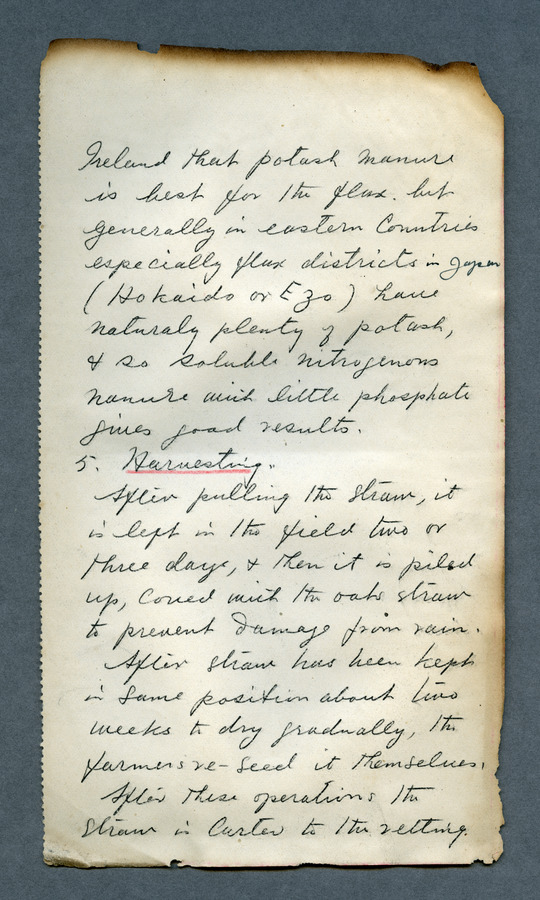 Ireland that potash manure
is best for the flax. but
generally in eastern Countries
especially flax districts in Japan
(Hokaido or Ezo) have
naturaly plenty of potash,
& so soluble nitrogenous
manure with little phosphate
gives good results.
5. Harvesting.
After pulling the straw, it
is left in the field two or
three days, & then it is piled
up, coved with the oats straw
to prevent damage from rain.
After straw has been kept
in same position about two
weeks to dry gradually, the
farmers re-seed it themselves.
After these operations the
straw is Carted to the retting